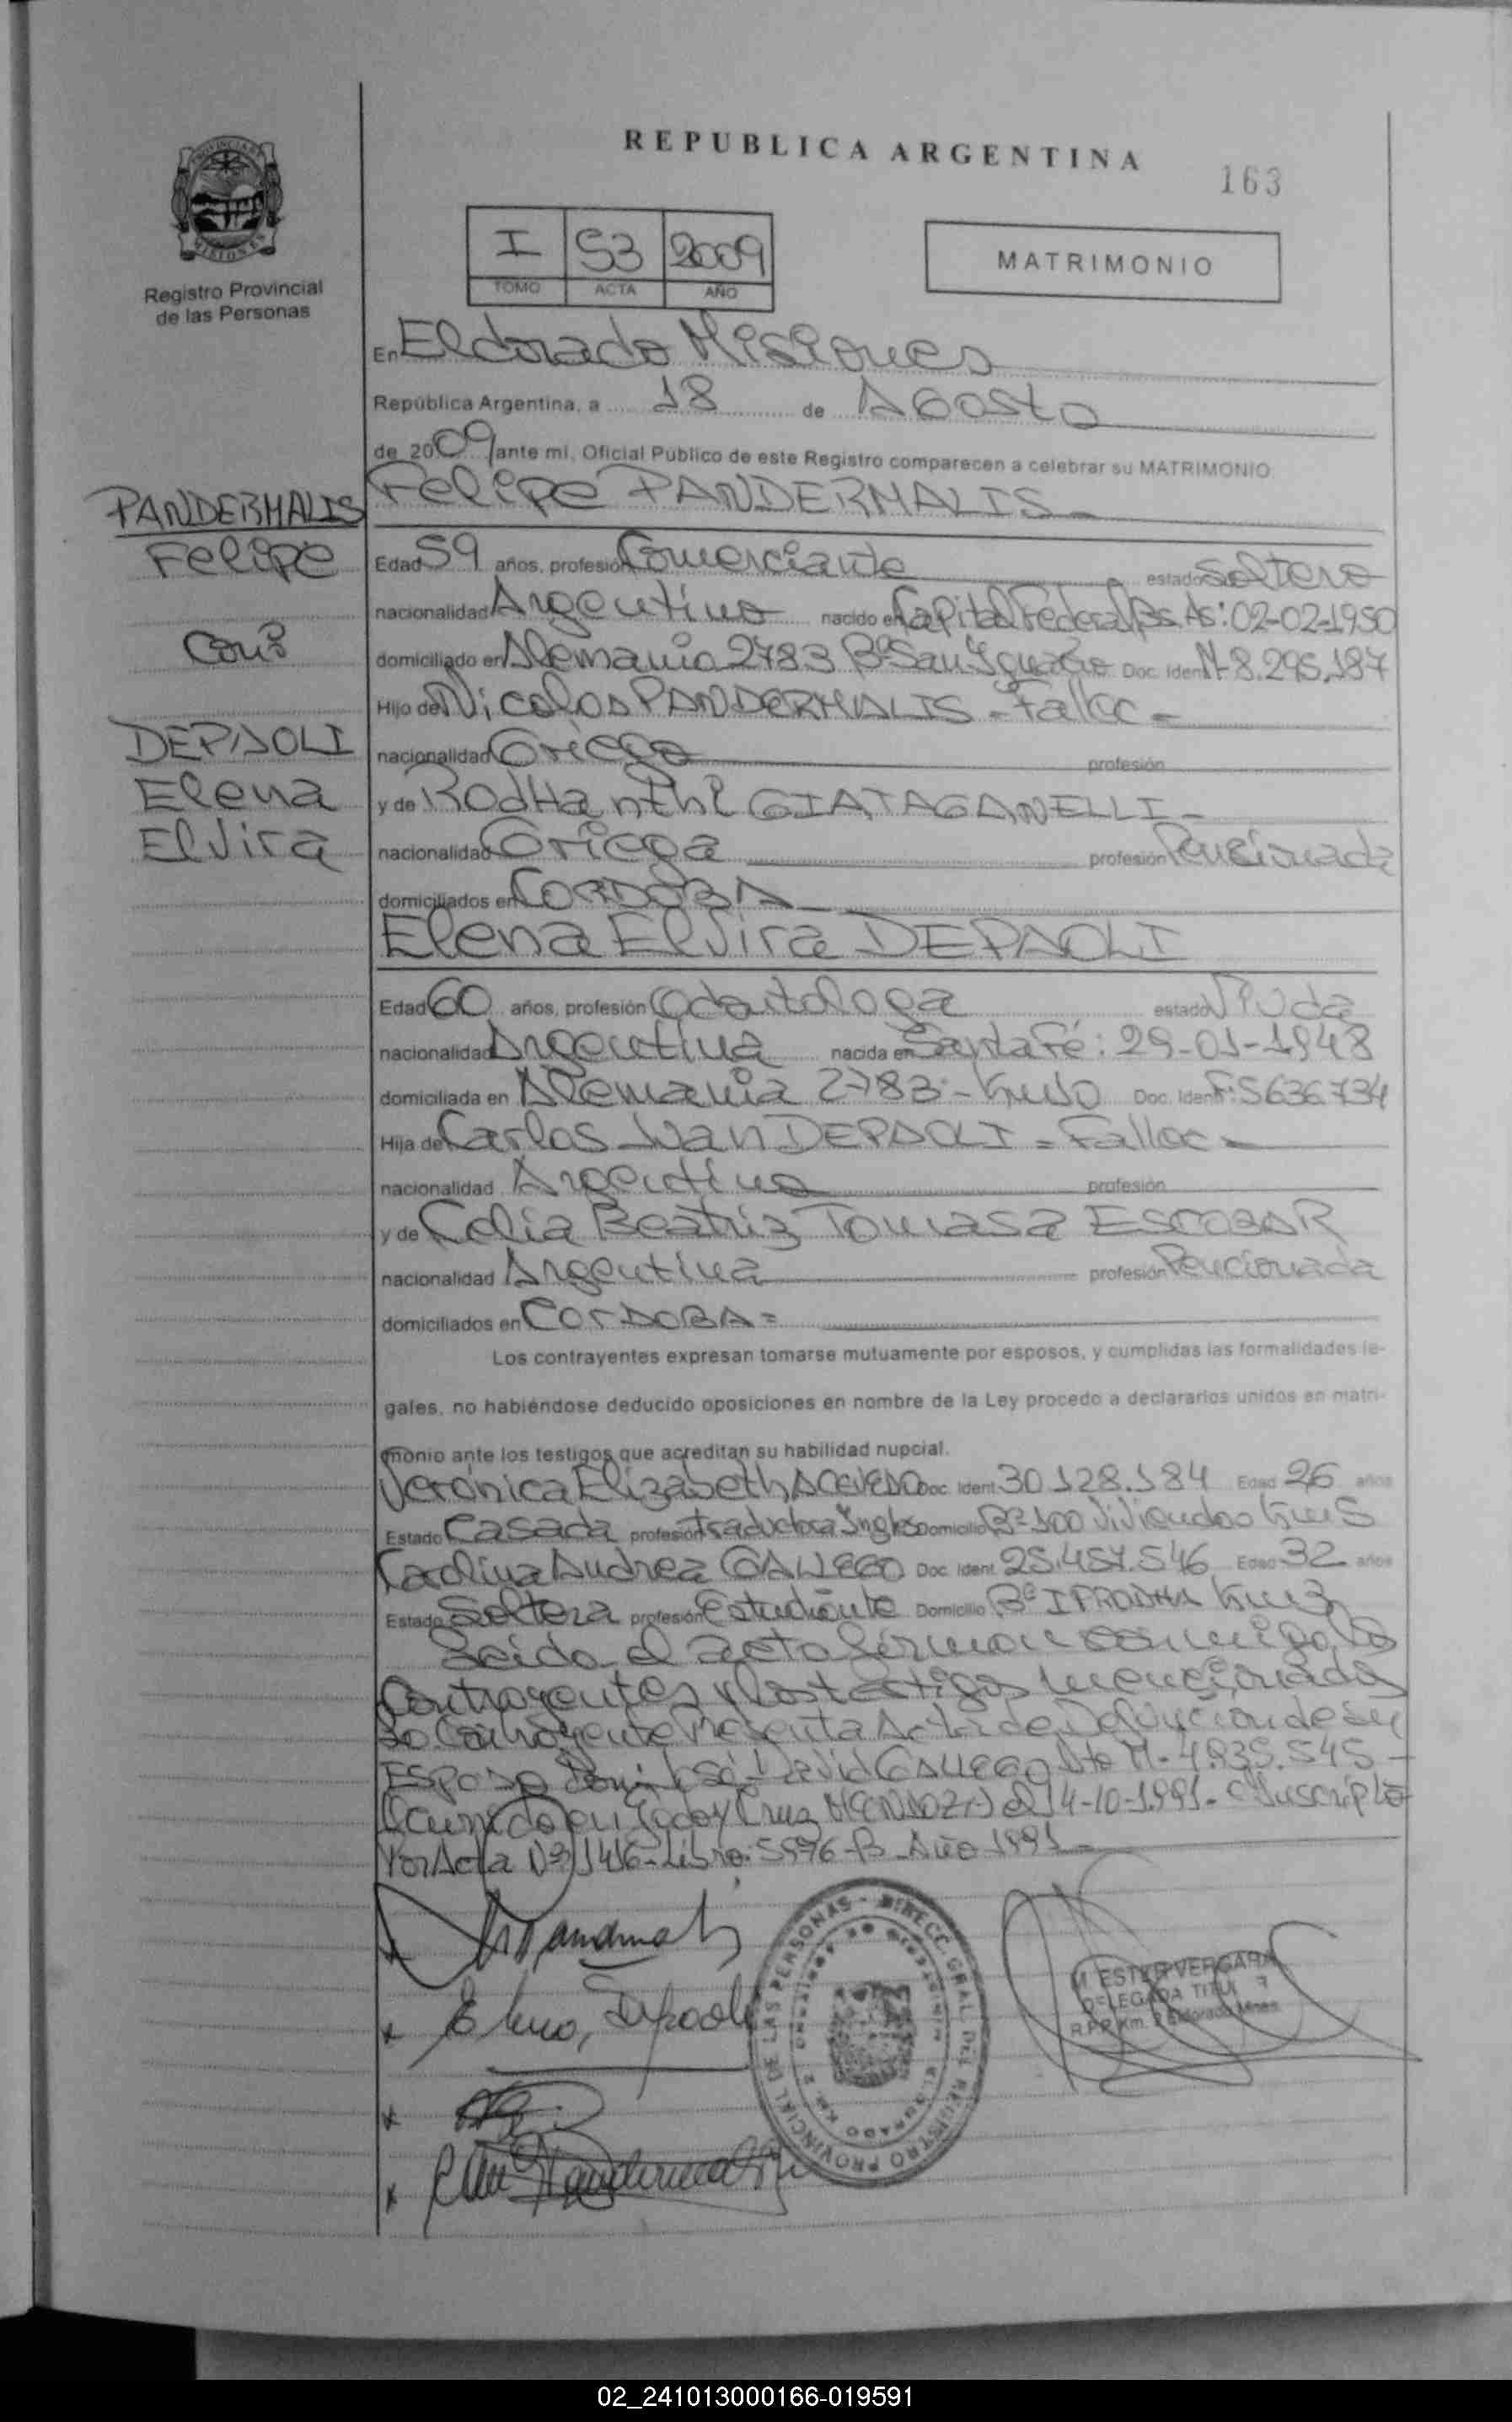 REPUBLICA ARGENTINA
163
PROVINCIA DE MISIONES
Registro Provincial
de las Personas
I 53 2009
TOMO ACTA AÑO
MATRIMONIO
En Eldorado Misiones
República Argentina, a 18 de Agosto
de 2009 ante mi, Oficial Público de este Registro comparecen a celebrar su MATRIMONIO
Felipe PANDERMALIS
PANDERMALIS
Felipe
Con:
DEPAOLI
Elena
Elvira
Edad 59 años, profesión Comerciante estado Soltero
nacionalidad Argentino nacido en Capital Federal Bs. As: 02-02-1950
domiciliado en Alemania 2783 Bº San Ignacio Doc. Ident M-8.295.187
Hijo de Nicolos PANDERMALIS - Fallec -
nacionalidad Griego profesión
y de RodHanthi GIATAGANELLI -
nacionalidad Griega profesión Pencionada
domiciliados en CORDOBA
Elena Elvira DEPAOLI
Edad 60 años, profesión Odontologa estado Viuda
nacionalidad Argentina nacida en Santa Fé: 29-01-1948
domiciliada en Alemania 2783 - Doc. Ident F: 5636734
Hija de Carlos Juan DEPAOLI = Fallec -
nacionalidad Argentino profesión
y de Celia Beatriz Tomasa ESCOBAR
nacionalidad Argentina profesión Pencionada
domiciliados en CORDOBA =
Los contrayentes expresan tomarse mutuamente por esposos, y cumplidas las formalidades le-
gales, no habiéndose deducido oposiciones en nombre de la Ley procedo a declararlos unidos en matri-
monio ante los testigos que acreditan su habilidad nupcial.
Verónica Elizabeth ACEVEDO Doc. Ident. 30.128.184 Edad 26 años
Estado Casada profesión Traductora Ingles Domicilio Bº 100 Viviendas
Carolina Andrea GALLEGO Doc. Ident. 25.457.546 Edad 32 años
Estado Soltera profesión Estudiante Domicilio Bº IPRODHA
Leida el acta firman conmigo los
Contrayentes y los testigos mencionados
La Contrayente Presenta Acta de Defunción de su
ESPOSO Don: José David GALLEGO Dto M- 4.935.545 -
Ocurrido en Godoy Cruz MENDOZA el 14-10-1991- Inscripto
Por Acta Nº 1416 - Libro: 5996-B - Año 1991 -
DIRECC. GRAL. DEL REGISTRO PROVINCIAL DE LAS PERSONAS
ELDORADO KM. 2
M. ESTER VERGARA
DELEGADA TITUL
R.P.P. Km. 2 Eldorado Mnes.
02_241013000166-019591